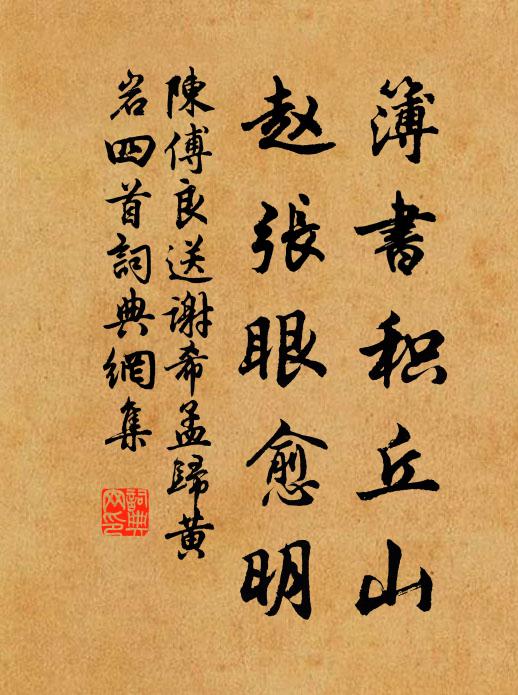 簿書积丘山
赵張眼愈明
陳傅良送谢希孟歸黄
岩四首詞典網集
詞典
网印